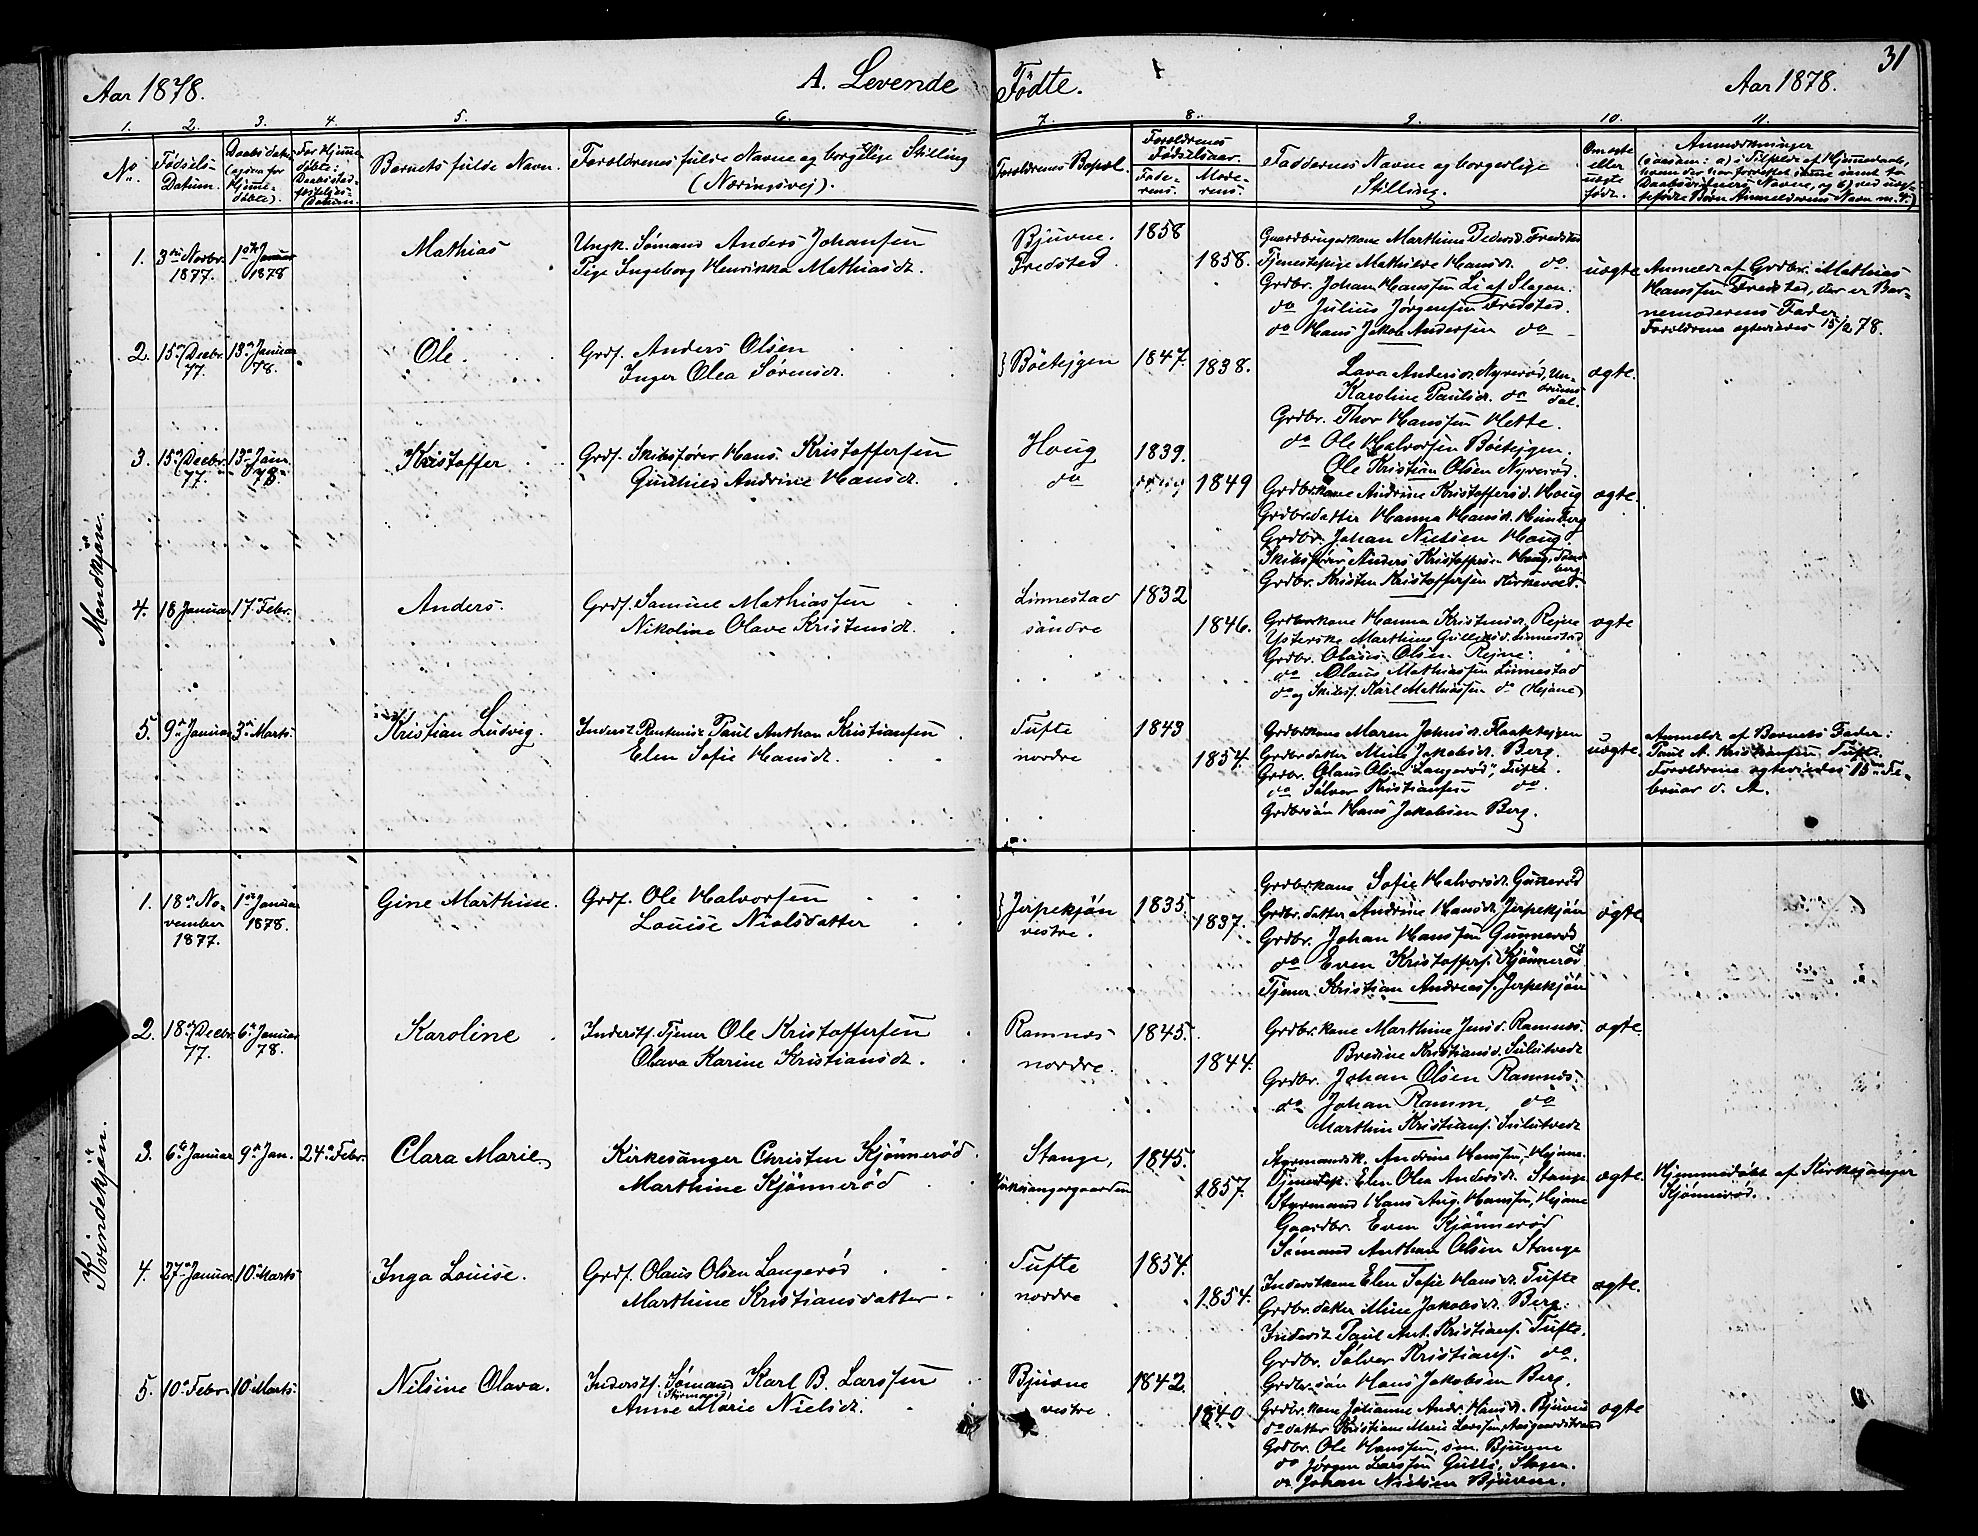 31
Aar 1878.
A. Levende Fødte.
Aar 1878.
1. 2. 3. 4. 5. 6. 7. 8. 9. 10. 11.
No.
Fødsels-
Datum.
Daabsdatum
(ogsaa for
Hjemme-
døbte).
For Hjemme-
døbte:
Daabsstad-
fæstelses-
Datum.
Barnets fulde Navn.
Forældrenes fulde Navne og borgelige Stilling
(Næringsvej).
Forældrenes Bopæl.
Forældrenes
Fødselsaar.
Fade-
rens.
Mode-
rens.
Faddernes Navne og borgerlige
Stilling.
Om ægte
eller
uægte
født.
Anmærkninger
Mandkjøn.
1. 3die Novbr. 1ste Januar
1877. 1878
Mathias
Ungk. Sømand Anders Johansen
Pige Ingeborg Henrikka Mathiasdt.
Bjuvne.
Fredsted
1858
1858.
Gaardbrugerkone Marthine Pedersd. Fredsted
Tjenestepige Mathilde Hansdt. do.
Grdbr. Johan Hanssen Li af Slagen.
do Julius Jørgensen Fredsted.
do Hans Jakob Andersen do
uægte
Anmeldt af Grdbr. Mathias
Hanssen Fredsted, der er Bar-
nemoderens Fader.
Forældrene ægteviedes 15/2 78.
2. 15de Decbr. 13de Januar
77. 78.
Ole.
Grdf. Anders Olsen
Inger Olea Sørensdt.
Böeteigen
1847.
1838.
Lava Andersdt. Nyrerød, Un-
Karoline Paulsdt. do drums-
dal.
Grdbr. Thor Hanssen Mette.
do Ole Halvorsen Böeteigen.
Ole Kristian Olsen Nyrerød.
ægte.
3. 15de Decbr. 13de Jan.
77. 78.
Kristoffer
Grdf. Skibsfører Hans Kristoffersen
Andrine Hansdt.
Houg
do
1839.
1849
Grdbrkone Andrine Kristoffersd. Houg
Grdbr.datter Hanna Hansdt.
Grdbr. Johan Nielsen Haug.
Skibsfører Anders Kristoffersen Haug, Tøns-
berg.
Grdbr. Kristen Kristoffersen
ægte.
4. 18 Januar 17de Febr.
Anders.
Grdf. Samuel Mathiassen
Nikoline Olave Kristensdt.
Linnestad
söndre
1832
1846.
Grdbrkone Hanna Kristensdt. Rejne
Marthine Linnestad
Grdbr. Olaus Olsen Rejne.
do Olaus Mathiassen Linnestad
do og Skibsf. Karl Mathiassen do (Hejane)
ægte
5. 9de Januar 3de Marts.
Kristian Ludvig.
Inderst Paul Anthon Kristiansen
Elen Sofie Hansdt.
Tufte
nordre
1843
1854.
Grdbrkone Maren Johnsdt. Flaatteigen
Grdbrdatter Mine Jakobsdt. Berg.
Grdbr. Olaus Olsen "Langerød", Tufte.
do Sølver Kristiansen do.
Grdbrsön Hans Jakobsen Berg.
uægte.
Anmeldt af Barnets Fader:
Paul A. Kristiansen Tufte.
Forældrene ægteviedes 15de Fe-
bruar d. A.
Kvindekjøn.
1. 18de No- 1ste Januar
vember 1878.
1877.
Gine Marthine.
Grdf. Ole Halvorsen
Louise Nielsdatter
Jerpekjøn
vestre.
1835.
1837.
Grdbrkone Sofie Halvorsdt. Gunnerød
Grdbr.datter Andrine Hansdt. Jerpekjøn
Grdbr. Johan Hanssen Gunnerød
do Even Kristoffers. Kjønnerød
Tjener Kristian Andreass. Jerpekjøn
ægte.
2. 18de Decbr. 6te Januar
77. 78.
Karoline
Inderstf. Tjener Ole Kristoffersen
Olava Karine Kristiansdt.
Ramnes
nordre.
1845.
1844.
Grdbr.kone Marthine Jensd. Ramnes.
Bredine Kristiansd. Sulutvedt
Grdbr. Johan Olsen Ramnes.
do Johan Ramm, do
Marthin Kristians. Sulutvedt
ægte.
3. 6te Januar 9de Jan. 24de Febr.
Clara Marie.
Kirkesanger Christen Kjønnerød.
Marthine Kjønnerød
Stange,
Kirkesangergaarden
1845.
1857.
Styrmandsk. Andrine Hanssen, Hejane.
Tjenestep. Elen Olea Andersdt. Stange
Styrmand Hans Aug. Hanssen, Hejane
Gaardbr. Even Kjønnerød
Sømand Anthon Olsen Stange
ægte.
Hjemmedøbt af Kirkesanger
Kjønnerød.
4. 27de Januar 10de Marts
Inga Louise.
Grdf. Olaus Olsen Langerød
Marthine Kristiansdatter
Tufte
nordre
1854.
1854.
Inderstkone Elen Sofie Hansdt. Tufte
Grdbr.datter Mine Jakobsdt. Berg.
Inderst Paul Ant. Kristians. Tufte.
Grdbr. Sølver Kristians. do.
Grdbr.søn Hans Jakobsen Berg.
ægte.
5. 10de Febr. 10de Marts.
Nilsine Olava.
Inderstf. Sømand Karl B. Larssen
(Styrmand)
Anne Marie Nielsdt.
Bjuvne
vestre.
1842.
1840
Grdbr.kone Johanne Andr. Hansdt. Bjuvne
do datter Kristiane Marie Larssen, Aasgaardstrand
Grdbr. Ole Hanssen, sön. Bjuvne
do Jørgen Larssen Gulli, Slagen.
do Johan Nielsen Bjuvne.
ægte